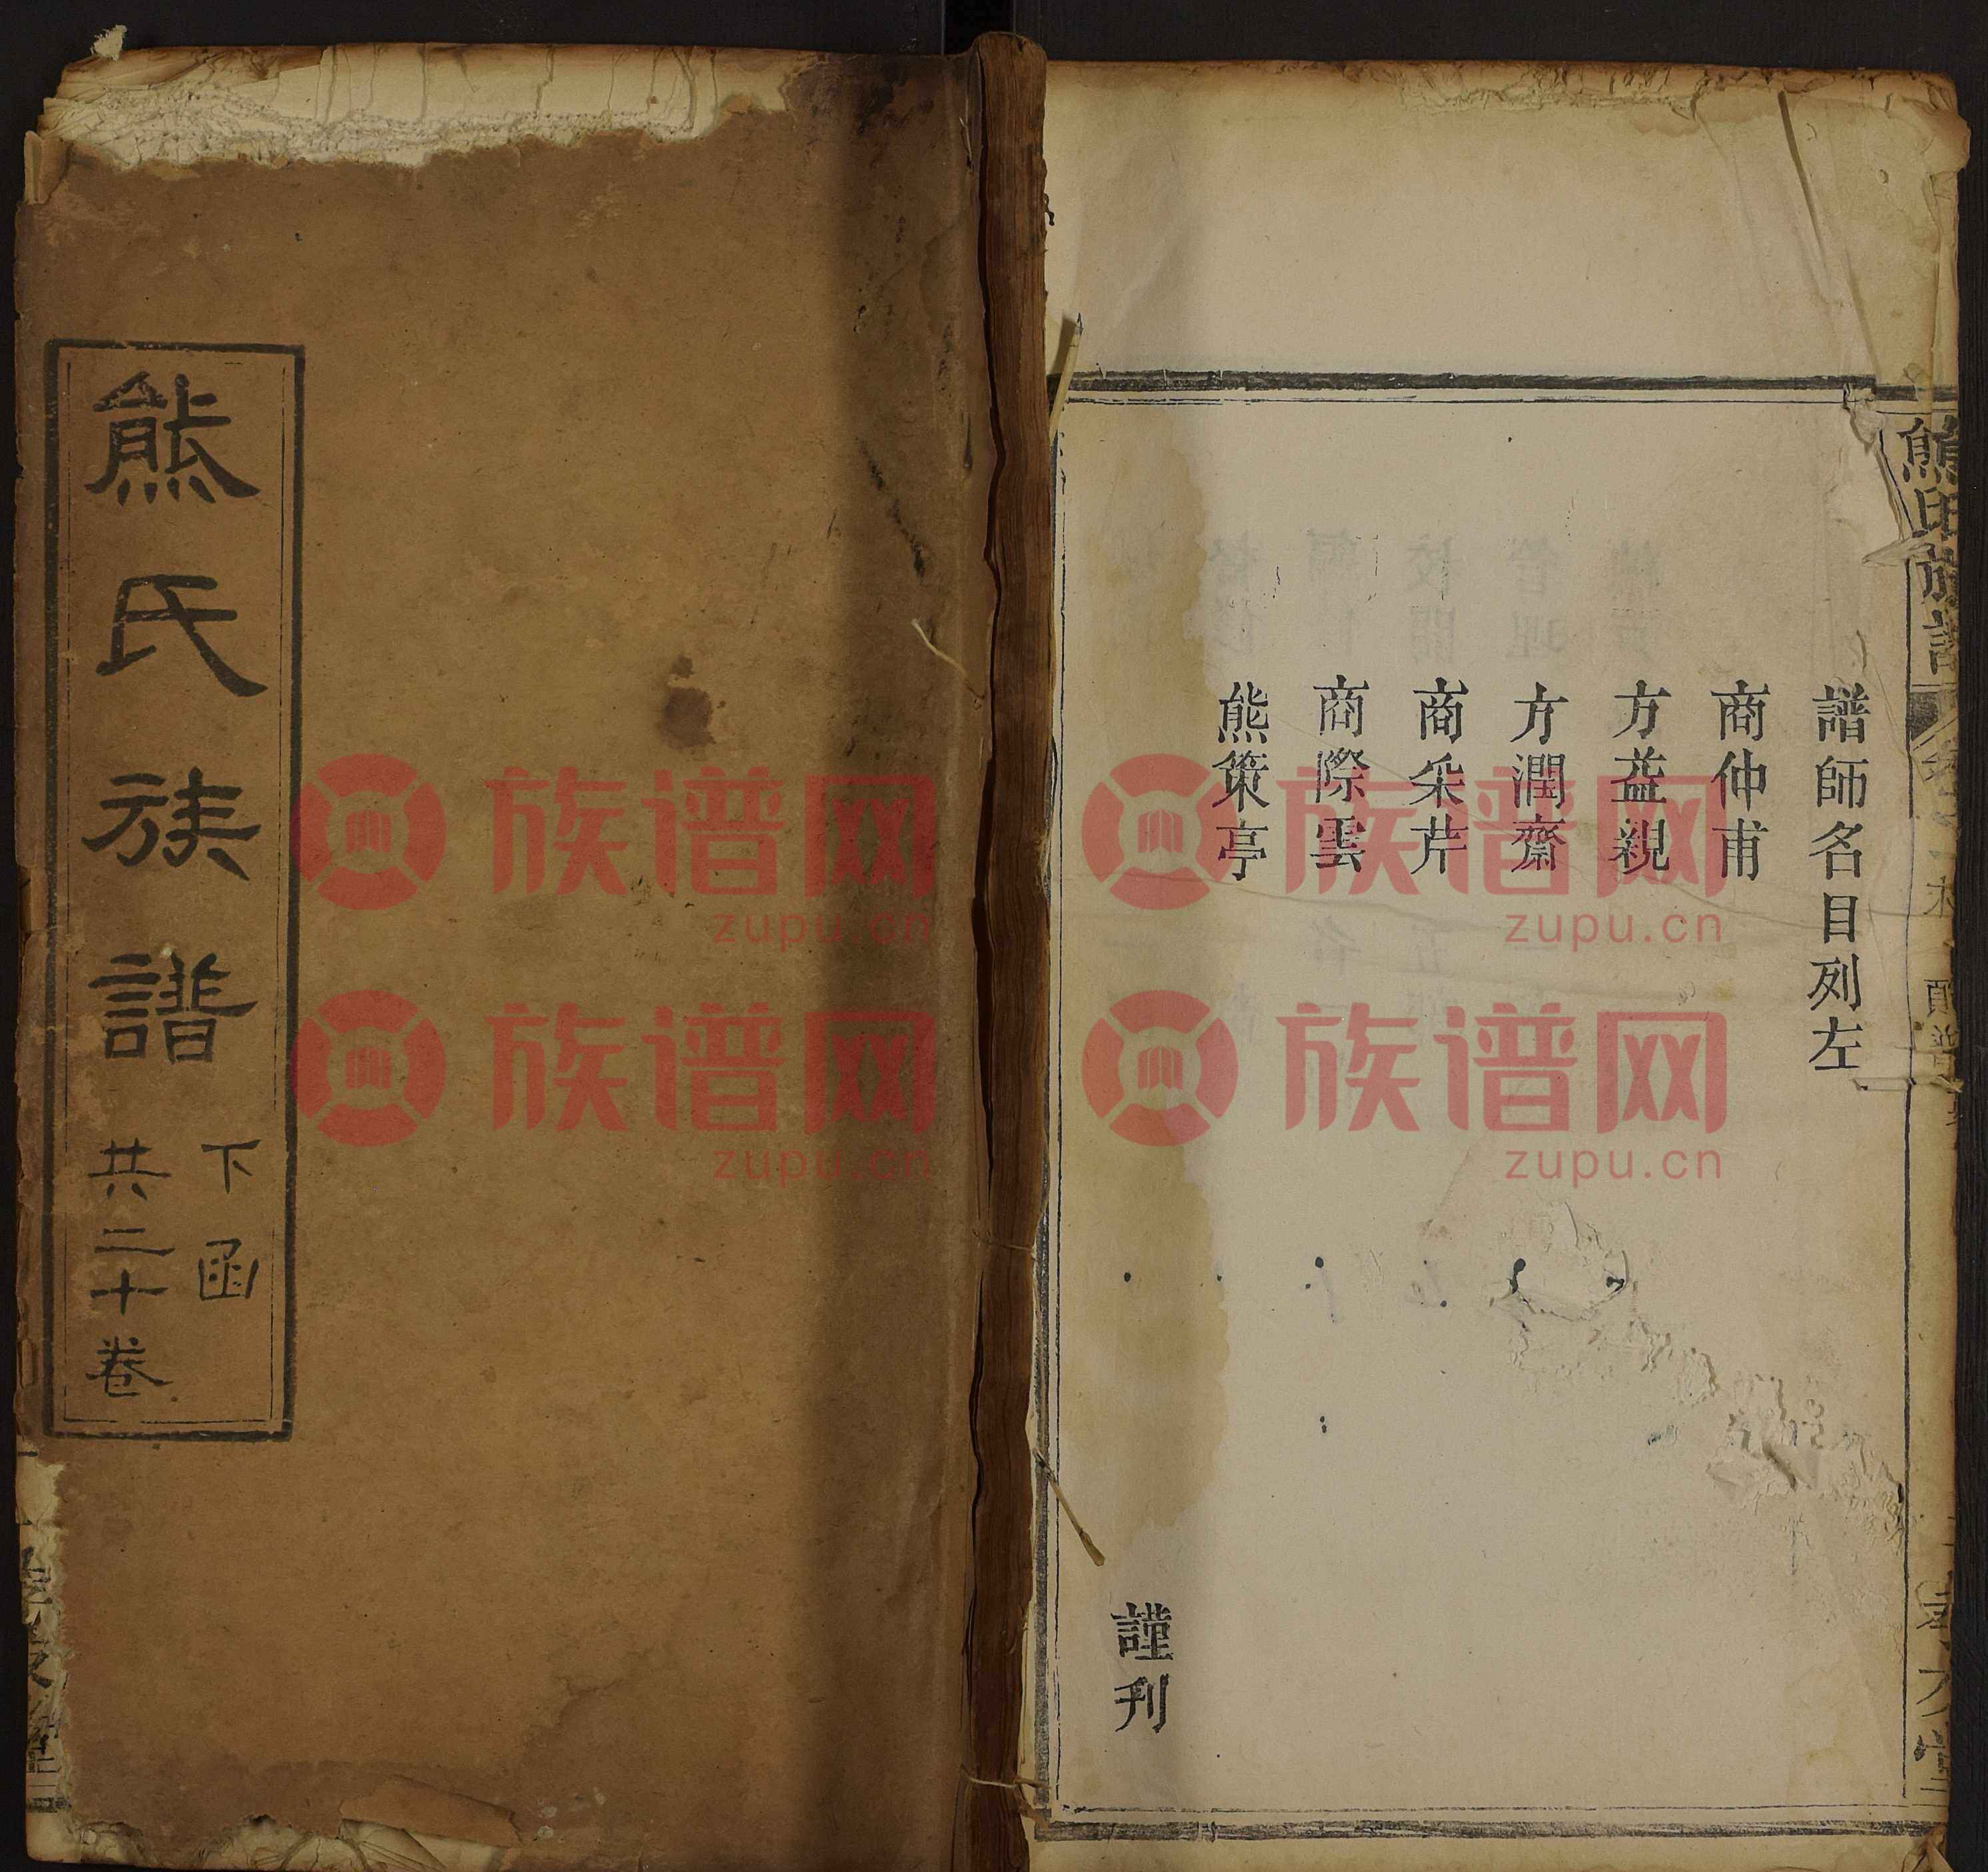 熊氏族譜
譜師名目列左
商仲甫
方益親
方潤齋
商采芹
商際雲
熊策亭
謹刊
熊氏族譜
下函
共二十卷
族谱网
zupu.cn
族谱网
zupu.cn
族谱网
zupu.cn
族谱网
zupu.cn